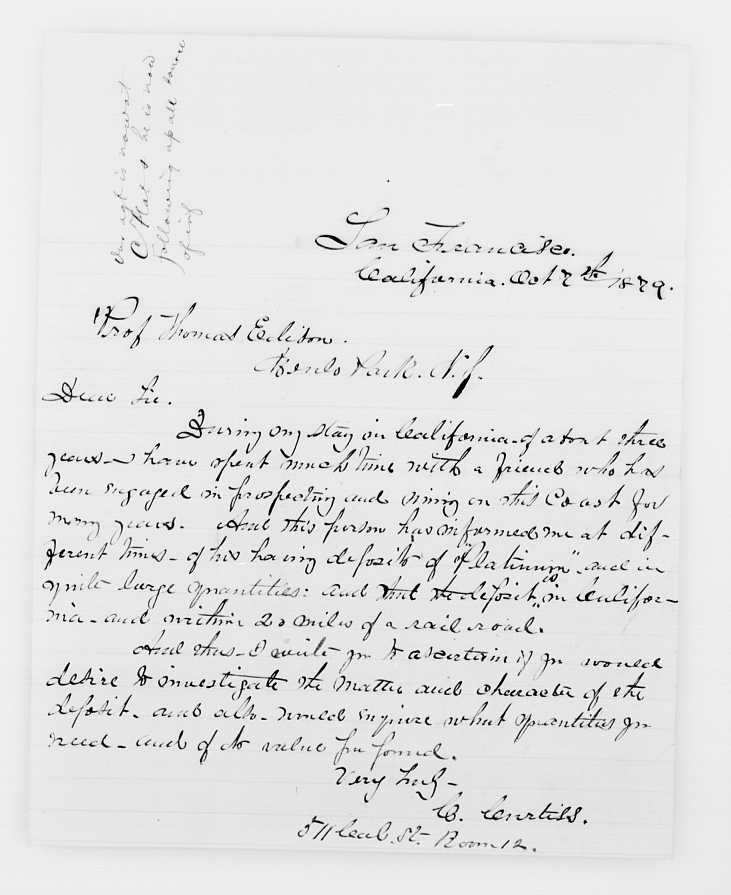 Our agt is now at
Cal & he is now
following up all source
of inf
San Francisco.
California. Oct 7th 1879.
Prof Thomas Edison.
Menlo Park. N.J.
Dear Sir.
During my stay in California - of about three
years - I have spent much time with a friend who has
been engaged in prospecting and mining on this Coast for
many years. And this person has informed me at dif-
ferent times - of his having deposits of "Platinum" - and in
quite large quantities: and that the deposit is in Califor-
nia - and within 20 miles of a rail road.
And thus - I write you to ascertain if you would
desire to investigate the matter and character of the
deposit - and also - would enquire what quantities you
need - and of its value per pound.
Very Truly -
C. Curtiss.
511 Cal. St. Room 12.